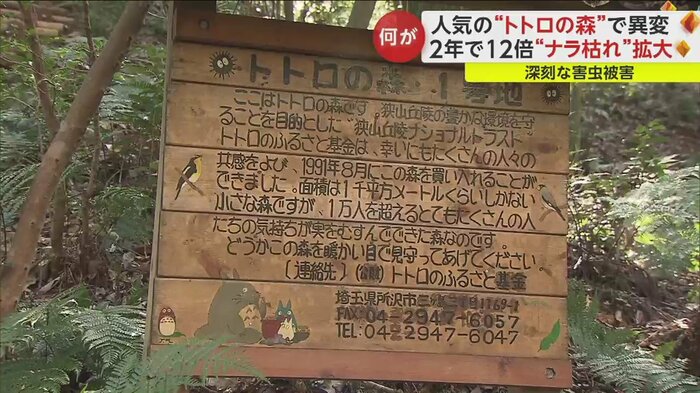 何が
人気の“トトロの森”で異変
2年で12倍“ナラ枯れ”拡大
深刻な害虫被害
トトロの森 1番地
ここはトトロの森です。狭山丘陵の豊かな環境を守
ることを目的とした 狭山丘陵ナショナルトラスト
トトロのふるさと基金は、幸いにもたくさんの人々の
共感をよび、1991年8月にこの森を買い入れることが
できました。面積は1千平方メートルくらいしかない
小さな森ですが、1万人を超えるとてもたくさんの人
たちの気持ちが実をむすんでできた森なのです
どうかこの森を暖かい目で見守ってあげてください。
〔連絡先〕トトロのふるさと基金
埼玉県所沢市三ヶ島二丁目1169-1
FAX:04-2947-6057
TEL:04-2947-6047